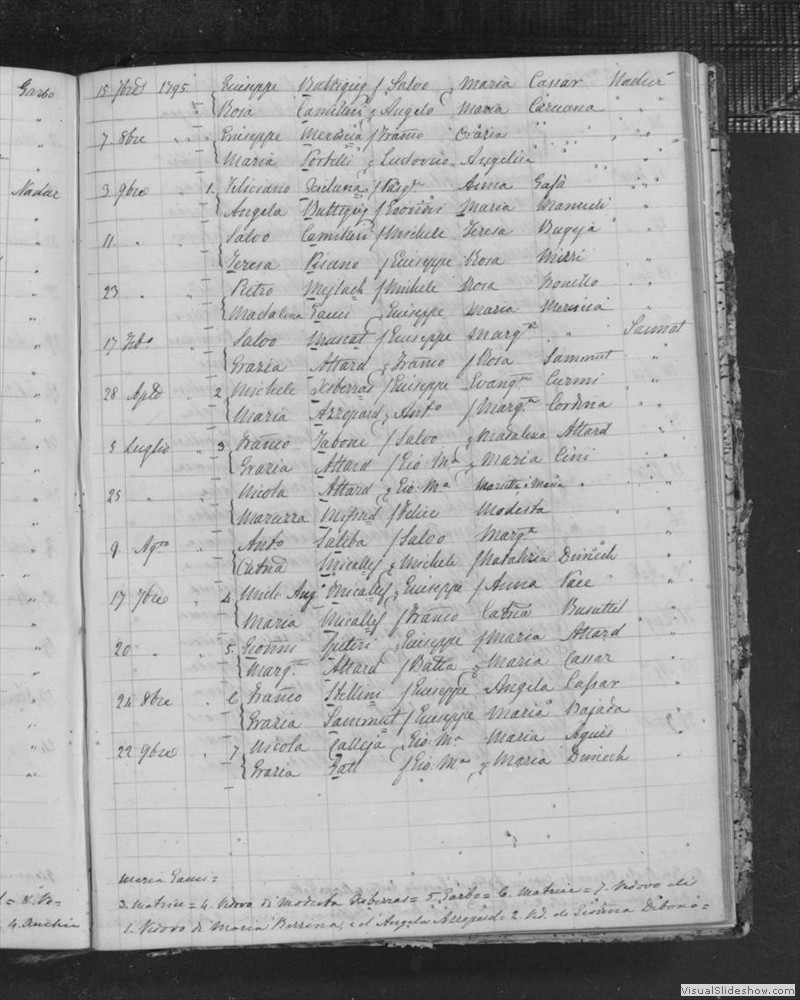 Garbo
Nadur
15 7bre 1795 Giuseppe Buttigieg / Salvo & Maria Cassar Nadur
Rosa Camilleri & Angelo Maria Caruana
7 8bre Giuseppe / Franco
Maria Portelli & Ludovico Angelica
3 9bre 1. Feliciano Anna
Angela Buttigieg / Gionni Maria
11 Salvo Camilleri / Michele Teresa Bugeja
Teresa Pisano / Giuseppe Rosa Mizzi
23 Pietro / Michele Rosa
Madalena Giuseppe Maria
17 Salvo Muscat / Giuseppe Marga Sannat
Grazia Attard & Franco / Rosa Sammut
28 Aple 2 Michele Xiberras / Giuseppe Evanga Curmi
Maria Azzopard & Anto / Marga Cordina
5 Luglio 3 Franco Tabone / Salvo & Madalena Attard
Grazia Attard / Gio. Ma & Maria Cini
25 Nicola Attard & Gio. Ma
Maruzza Mifsud / Felice Modesta
9 Agto Anto Saliba / Salvo Marga
Catna Micallef & Michele / Dimech
17 7bre 4 Mich: Ang: Micallef & Giuseppe / Anna Pace
Maria Micallef / Franco Catna Busuttil
20 5. Gionni Spiteri Giuseppe / Maria Attard
Marga Attard / Batta & Maria Cassar
24 8bre 6 Franco Stellini / Giuseppe Angela Cassar
Grazia Sammut / Giuseppe Maria Bajada
22 9bre 7 Nicola Calleja & Gio: Ma Maria Agius
Grazia / Gio. Ma & Maria Dimech
Maria
3. Matrice = 4. Vedovo di Modesta Xiberras = 5. Garbo = 6. Matrice = 7. Vedovo di
1. Vedovo di Maria & di Angela Azzopard = 2. Ved. di =
VisualSlideshow.com